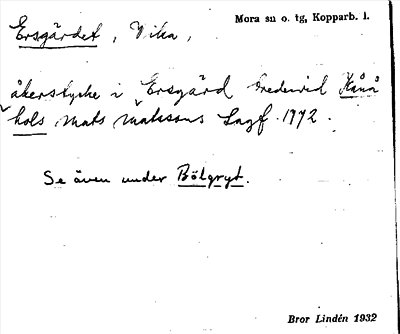 Ersgärdet, Vika,
Mora sn o. tg, Kopparb. l.
åkerstycke i Ersgärd Fredevid Kånå
kols Mats Matssons Lagf. 1972.
Se även under Bölgryt.
Bror Lindén 1932